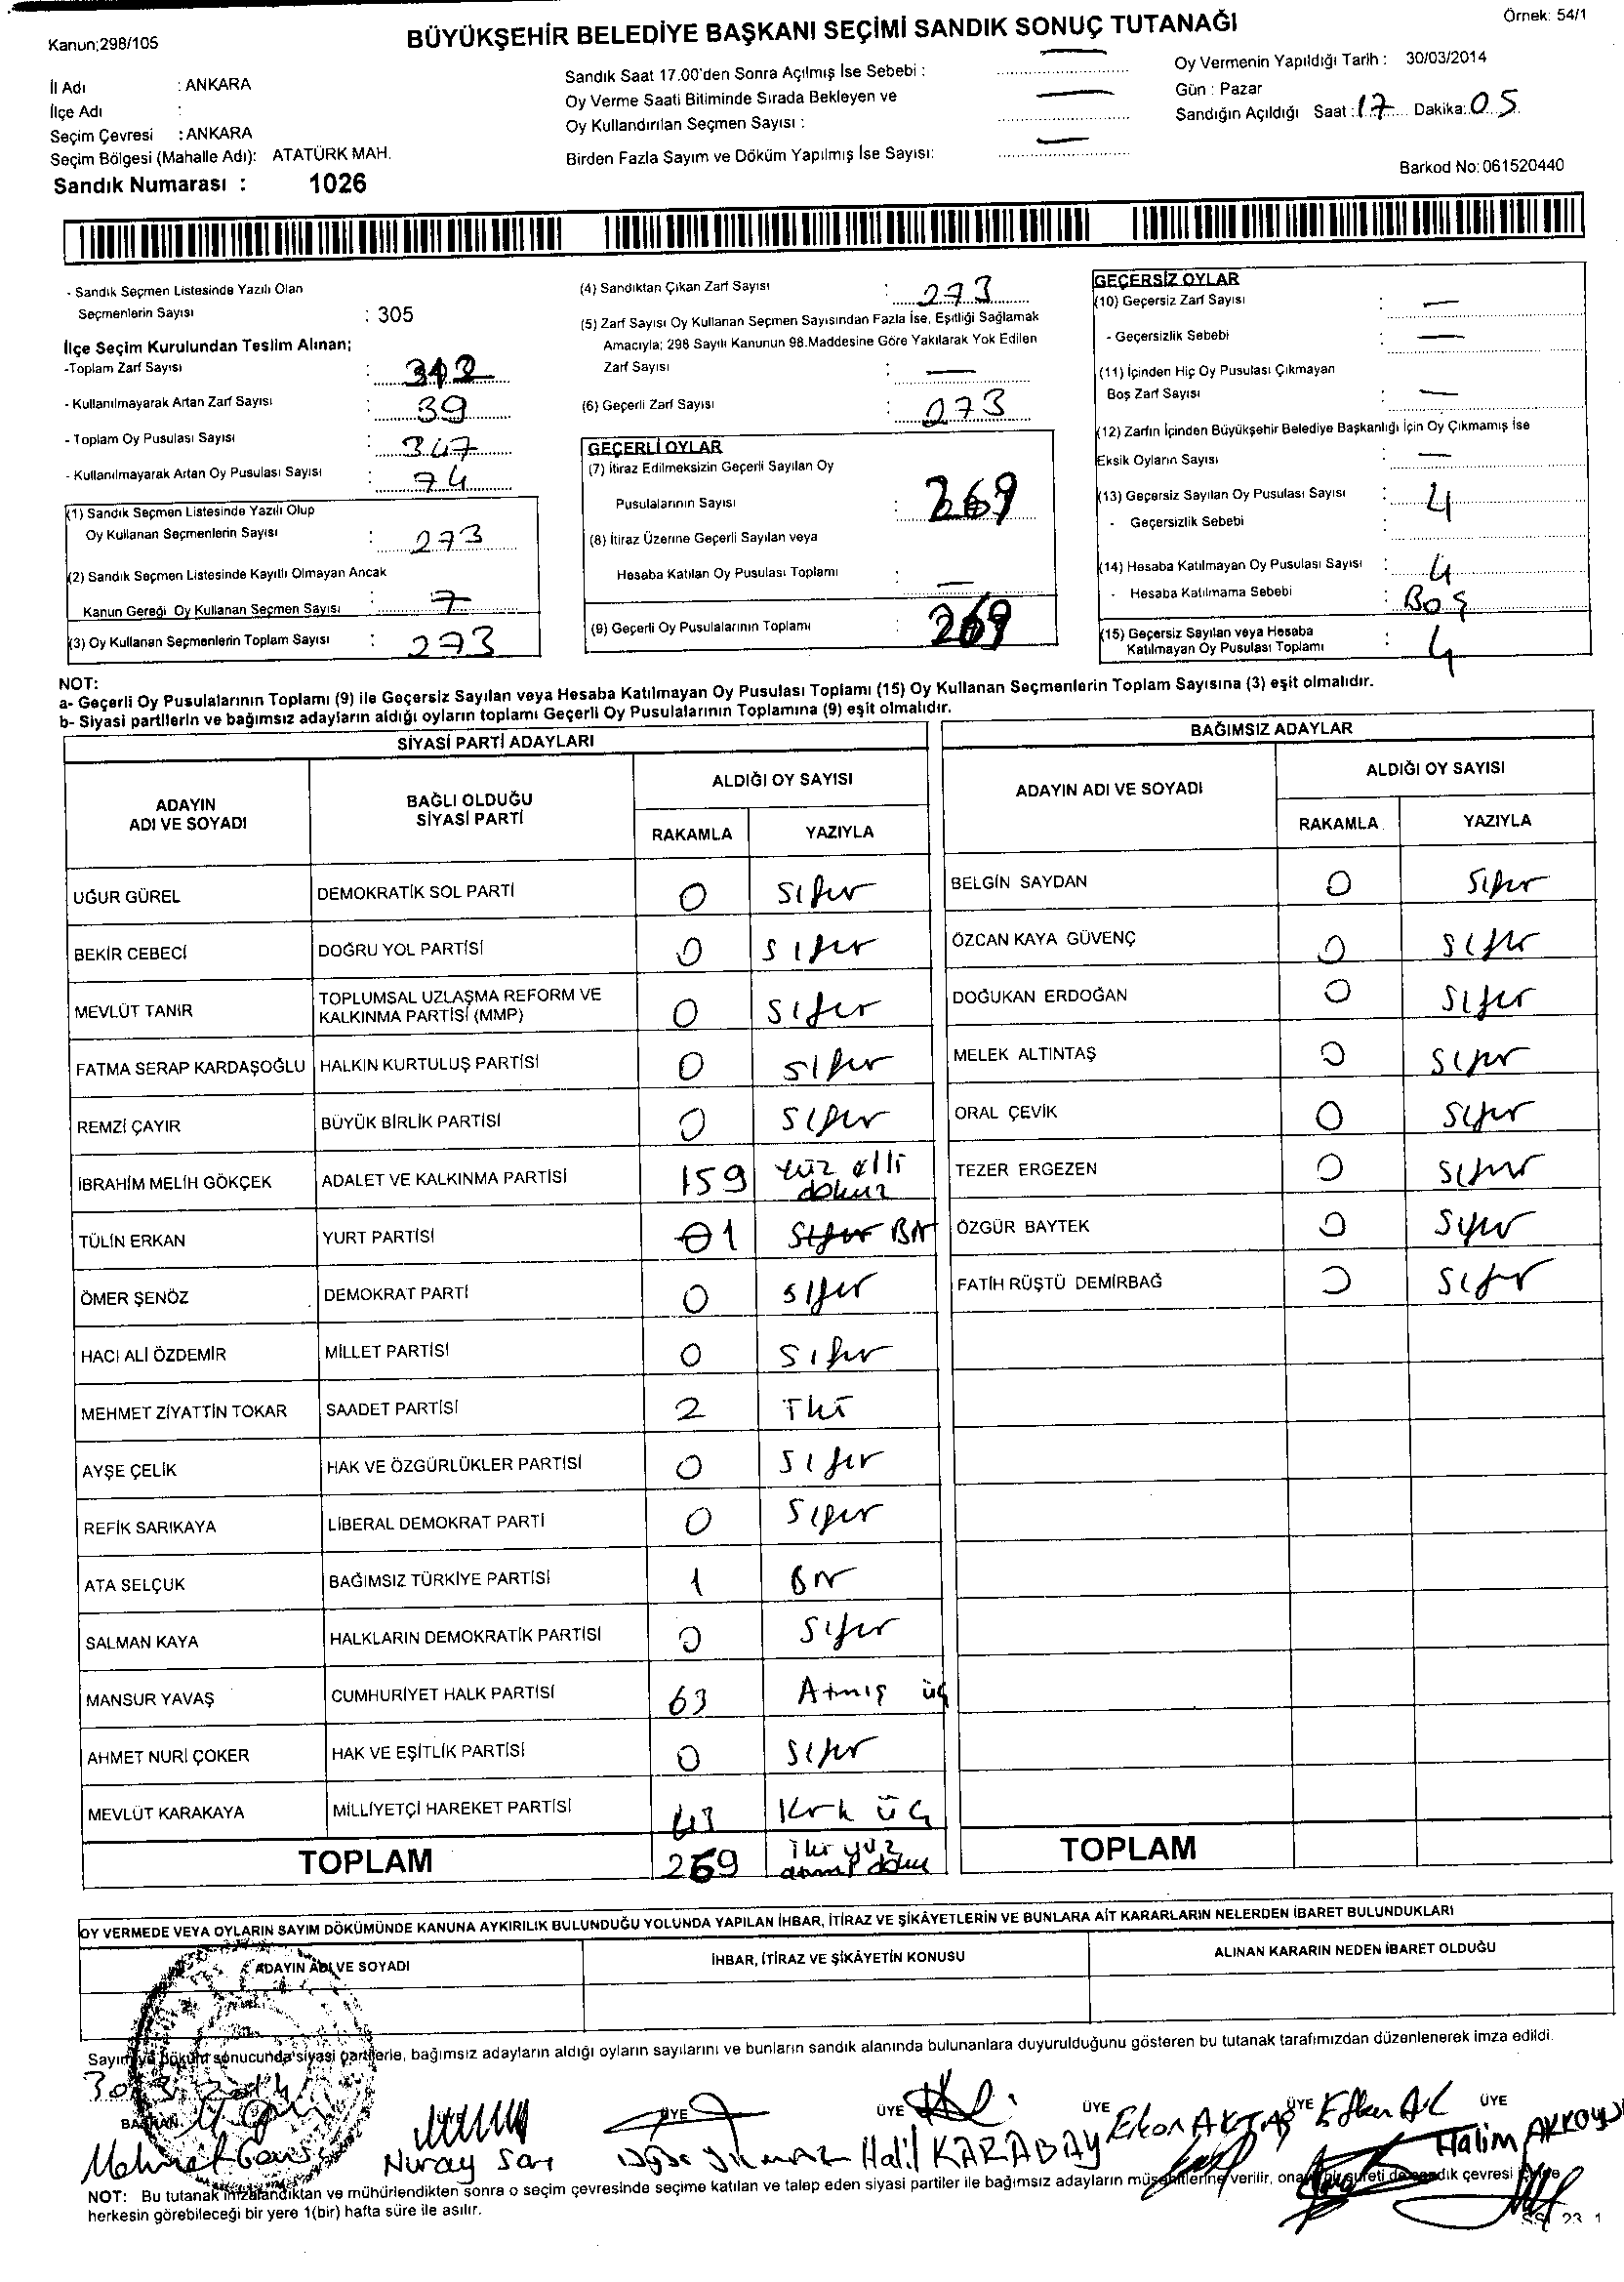 Örnek: 54/1
Kanun;298/105
BÜYÜKŞEHİR BELEDİYE BAŞKANI SEÇİMİ SANDIK SONUÇ TUTANAĞI
İl Adı : ANKARA
İlçe Adı :
Seçim Çevresi : ANKARA
Seçim Bölgesi (Mahalle Adı): ATATÜRK MAH.
Sandık Numarası : 1026
Sandık Saat 17.00'den Sonra Açılmış İse Sebebi : —
Oy Verme Saati Bitiminde Sırada Bekleyen ve
Oy Kullandırılan Seçmen Sayısı : —
Birden Fazla Sayım ve Döküm Yapılmış İse Sayısı: —
Oy Vermenin Yapıldığı Tarih : 30/03/2014
Gün : Pazar
Sandığın Açıldığı Saat : 17 Dakika: 05
Barkod No: 061520440
- Sandık Seçmen Listesinde Yazılı Olan
Seçmenlerin Sayısı : 305
İlçe Seçim Kurulundan Teslim Alınan;
-Toplam Zarf Sayısı : 312
- Kullanılmayarak Artan Zarf Sayısı : 39
- Toplam Oy Pusulası Sayısı : 347
- Kullanılmayarak Artan Oy Pusulası Sayısı : 74
(1) Sandık Seçmen Listesinde Yazılı Olup
Oy Kullanan Seçmenlerin Sayısı : 273
(2) Sandık Seçmen Listesinde Kayıtlı Olmayan Ancak
Kanun Gereği Oy Kullanan Seçmen Sayısı : 7
(3) Oy Kullanan Seçmenlerin Toplam Sayısı : 273
(4) Sandıktan Çıkan Zarf Sayısı : 273
(5) Zarf Sayısı Oy Kullanan Seçmen Sayısından Fazla İse, Eşitliği Sağlamak
Amacıyla; 298 Sayılı Kanunun 98.Maddesine Göre Yakılarak Yok Edilen
Zarf Sayısı : —
(6) Geçerli Zarf Sayısı : 273
GEÇERLİ OYLAR
(7) İtiraz Edilmeksizin Geçerli Sayılan Oy
Pusulalarının Sayısı : 269
(8) İtiraz Üzerine Geçerli Sayılan veya
Hesaba Katılan Oy Pusulası Toplamı : —
(9) Geçerli Oy Pusulalarının Toplamı : 269
GEÇERSİZ OYLAR
(10) Geçersiz Zarf Sayısı : —
- Geçersizlik Sebebi : —
(11) İçinden Hiç Oy Pusulası Çıkmayan
Boş Zarf Sayısı : —
(12) Zarfın İçinden Büyükşehir Belediye Başkanlığı İçin Oy Çıkmamış İse
Eksik Oyların Sayısı : —
(13) Geçersiz Sayılan Oy Pusulası Sayısı : 4
- Geçersizlik Sebebi :
(14) Hesaba Katılmayan Oy Pusulası Sayısı : 4
- Hesaba Katılmama Sebebi : Boş
(15) Geçersiz Sayılan veya Hesaba
Katılmayan Oy Pusulası Toplamı : 4
NOT:
a- Geçerli Oy Pusulalarının Toplamı (9) ile Geçersiz Sayılan veya Hesaba Katılmayan Oy Pusulası Toplamı (15) Oy Kullanan Seçmenlerin Toplam Sayısına (3) eşit olmalıdır.
b- Siyasi partilerin ve bağımsız adayların aldığı oyların toplamı Geçerli Oy Pusulalarının Toplamına (9) eşit olmalıdır.
SİYASİ PARTİ ADAYLARI
ADAYIN ADI VE SOYADI BAĞLI OLDUĞU SİYASİ PARTİ ALDIĞI OY SAYISI
RAKAMLA YAZIYLA
UĞUR GÜREL DEMOKRATİK SOL PARTİ 0 Sıfır
BEKİR CEBECİ DOĞRU YOL PARTİSİ 0 Sıfır
MEVLÜT TANIR TOPLUMSAL UZLAŞMA REFORM VE KALKINMA PARTİSİ (MMP) 0 Sıfır
FATMA SERAP KARDAŞOĞLU HALKIN KURTULUŞ PARTİSİ 0 Sıfır
REMZİ ÇAYIR BÜYÜK BİRLİK PARTİSİ 0 Sıfır
İBRAHİM MELİH GÖKÇEK ADALET VE KALKINMA PARTİSİ 159 Yüz elli dokuz
TÜLİN ERKAN YURT PARTİSİ 0 1 Sıfır Bir
ÖMER ŞENÖZ DEMOKRAT PARTİ 0 Sıfır
HACI ALİ ÖZDEMİR MİLLET PARTİSİ 0 Sıfır
MEHMET ZİYATTİN TOKAR SAADET PARTİSİ 2 İki
AYŞE ÇELİK HAK VE ÖZGÜRLÜKLER PARTİSİ 0 Sıfır
REFİK SARIKAYA LİBERAL DEMOKRAT PARTİ 0 Sıfır
ATA SELÇUK BAĞIMSIZ TÜRKİYE PARTİSİ 1 Bir
SALMAN KAYA HALKLARIN DEMOKRATİK PARTİSİ 0 Sıfır
MANSUR YAVAŞ CUMHURİYET HALK PARTİSİ 63 Atmış üç
AHMET NURİ ÇOKER HAK VE EŞİTLİK PARTİSİ 0 Sıfır
MEVLÜT KARAKAYA MİLLİYETÇİ HAREKET PARTİSİ 43 Kırk üç
TOPLAM 269 iki yüz atmış dokuz
BAĞIMSIZ ADAYLAR
ADAYIN ADI VE SOYADI ALDIĞI OY SAYISI
RAKAMLA YAZIYLA
BELGİN SAYDAN 0 Sıfır
ÖZCAN KAYA GÜVENÇ 0 Sıfır
DOĞUKAN ERDOĞAN 0 Sıfır
MELEK ALTINTAŞ 0 Sıfır
ORAL ÇEVİK 0 Sıfır
TEZER ERGEZEN 0 Sıfır
ÖZGÜR BAYTEK 0 Sıfır
FATİH RÜŞTÜ DEMİRBAĞ 0 Sıfır
TOPLAM
OY VERMEDE VEYA OYLARIN SAYIM DÖKÜMÜNDE KANUNA AYKIRILIK BULUNDUĞU YOLUNDA YAPILAN İHBAR, İTİRAZ VE ŞİKÂYETLERİN VE BUNLARA AİT KARARLARIN NELERDEN İBARET BULUNDUKLARI
ADAYIN ADI VE SOYADI İHBAR, İTİRAZ VE ŞİKÂYETİN KONUSU ALINAN KARARIN NEDEN İBARET OLDUĞU
Sayım ve döküm sonucunda siyasi partilerle, bağımsız adayların aldığı oyların sayılarını ve bunların sandık alanında bulunanlara duyurulduğunu gösteren bu tutanak tarafımızdan düzenlenerek imza edildi.
30.3.2014
BAŞKAN ÜYE ÜYE ÜYE ÜYE ÜYE ÜYE
Mehmet Nuray Sarı Halil KARABAY Erkan AKTAŞ Halim AKKOYUN
NOT: Bu tutanak imzalandıktan ve mühürlendikten sonra o seçim çevresinde seçime katılan ve talep eden siyasi partiler ile bağımsız adayların müşahitlerine verilir, onaylı bir sureti de sandık çevresi içinde
herkesin görebileceği bir yere 1(bir) hafta süre ile asılır.